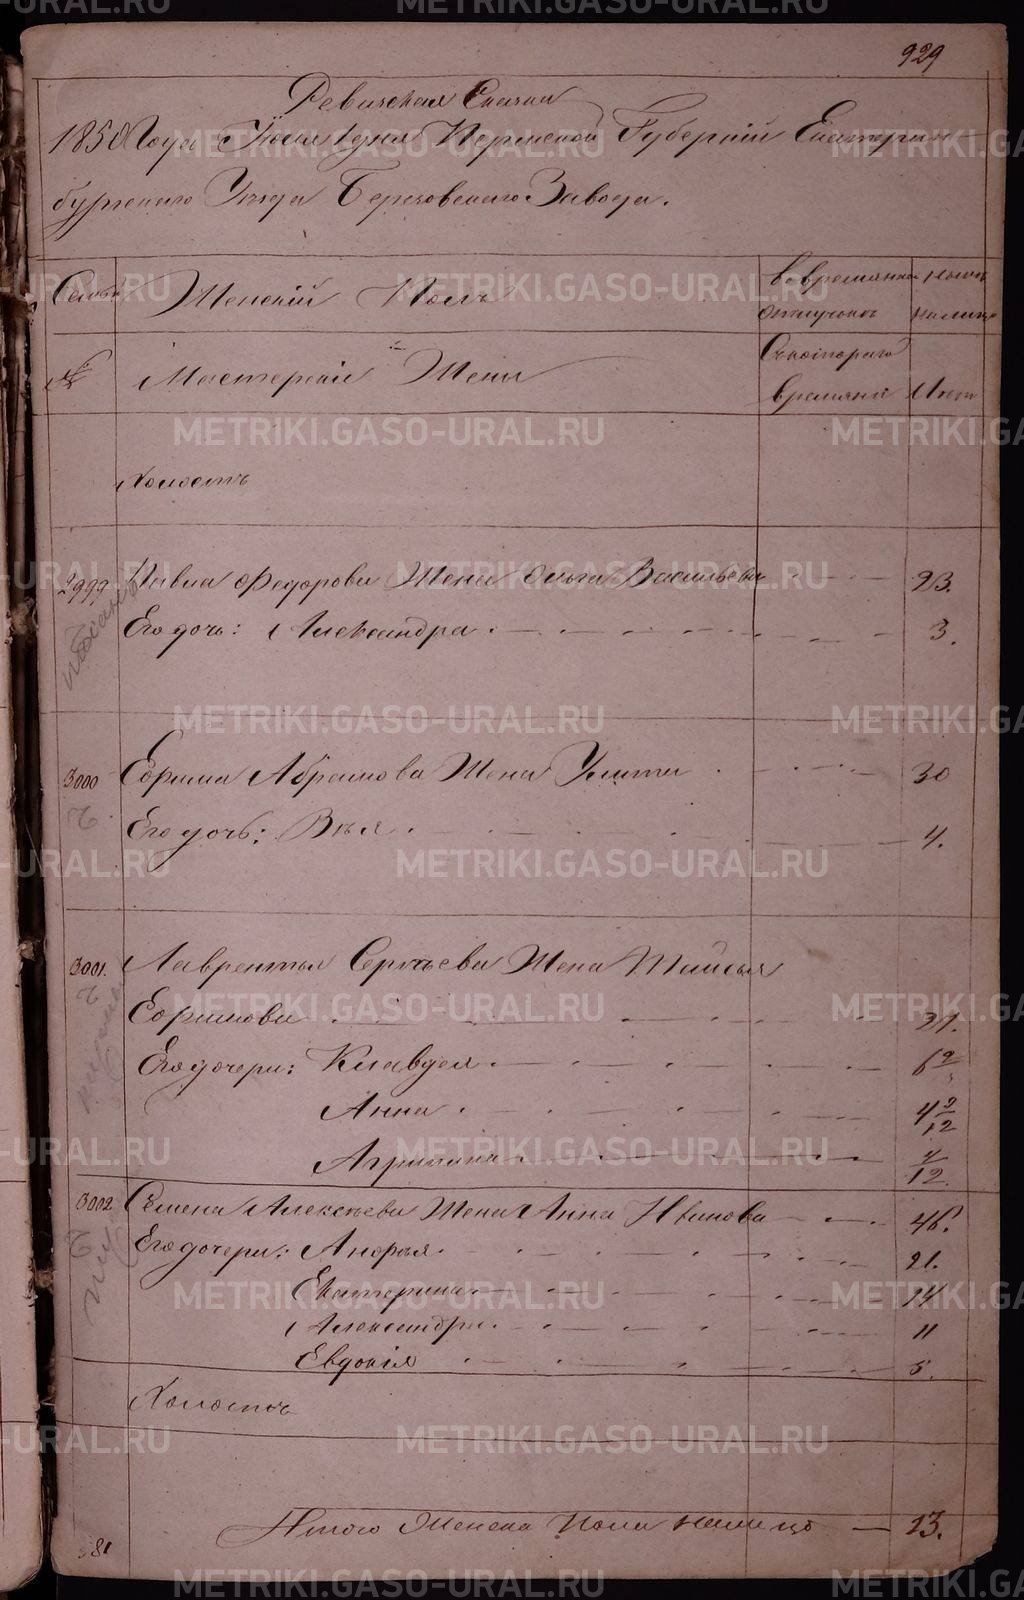 929
Ревизская Сказка
1850 Года Июля 1 дня Пермской Губернiи Екатерин-
бургскаго Уезда Березовскаго Завода.
Семьи
Женскiй Полъ
во временно
отлучкахъ
ныне
налицо
№
Мастерскiе Жены
Съ котораго
времяни
Лета
Холостъ
2999
Павла Федорова Жена Ольга Васильева 23.
Его дочь: Александра 3.
3000
Ефима Абрамова Жена Улита 30
Его дочь: Вѣра 4.
3001.
Лаврентья Сергѣева Жена Таисья
Ефимова 31.
Его дочери: Клавдея 6
Анна 4 9/12
Агрипина 4/12.
3002
Семена Алексѣева Жена Анна Иванова 46.
Его дочери: Анфья 21.
Екатерина 14
Александра 11
Евдокiя 5.
Холостъ
Итого Женска пола налицо — 13.
METRIKI.GASO-URAL.RU